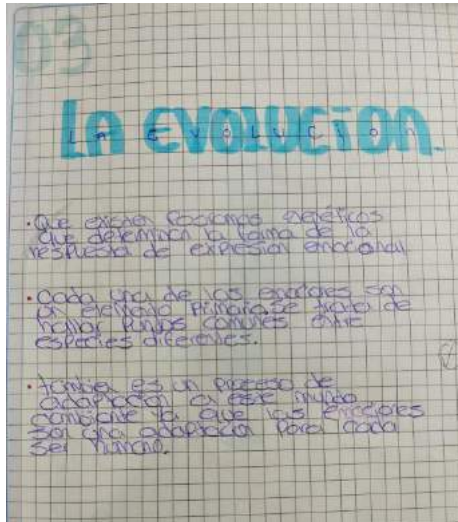 03
LA EVOLUCION.
LA EVOLUCION
• Que existen genéticos
que determinan la forma de la
respuesta de expresión emocional
• Cada una de las emociones son
un elemento primario se trata de
hallar puntos comunes entre
especies diferentes.
• tambien es un proceso de
adaptación a este mundo
cambiante ya que las emociones
son una adaptación para cada
ser humano.